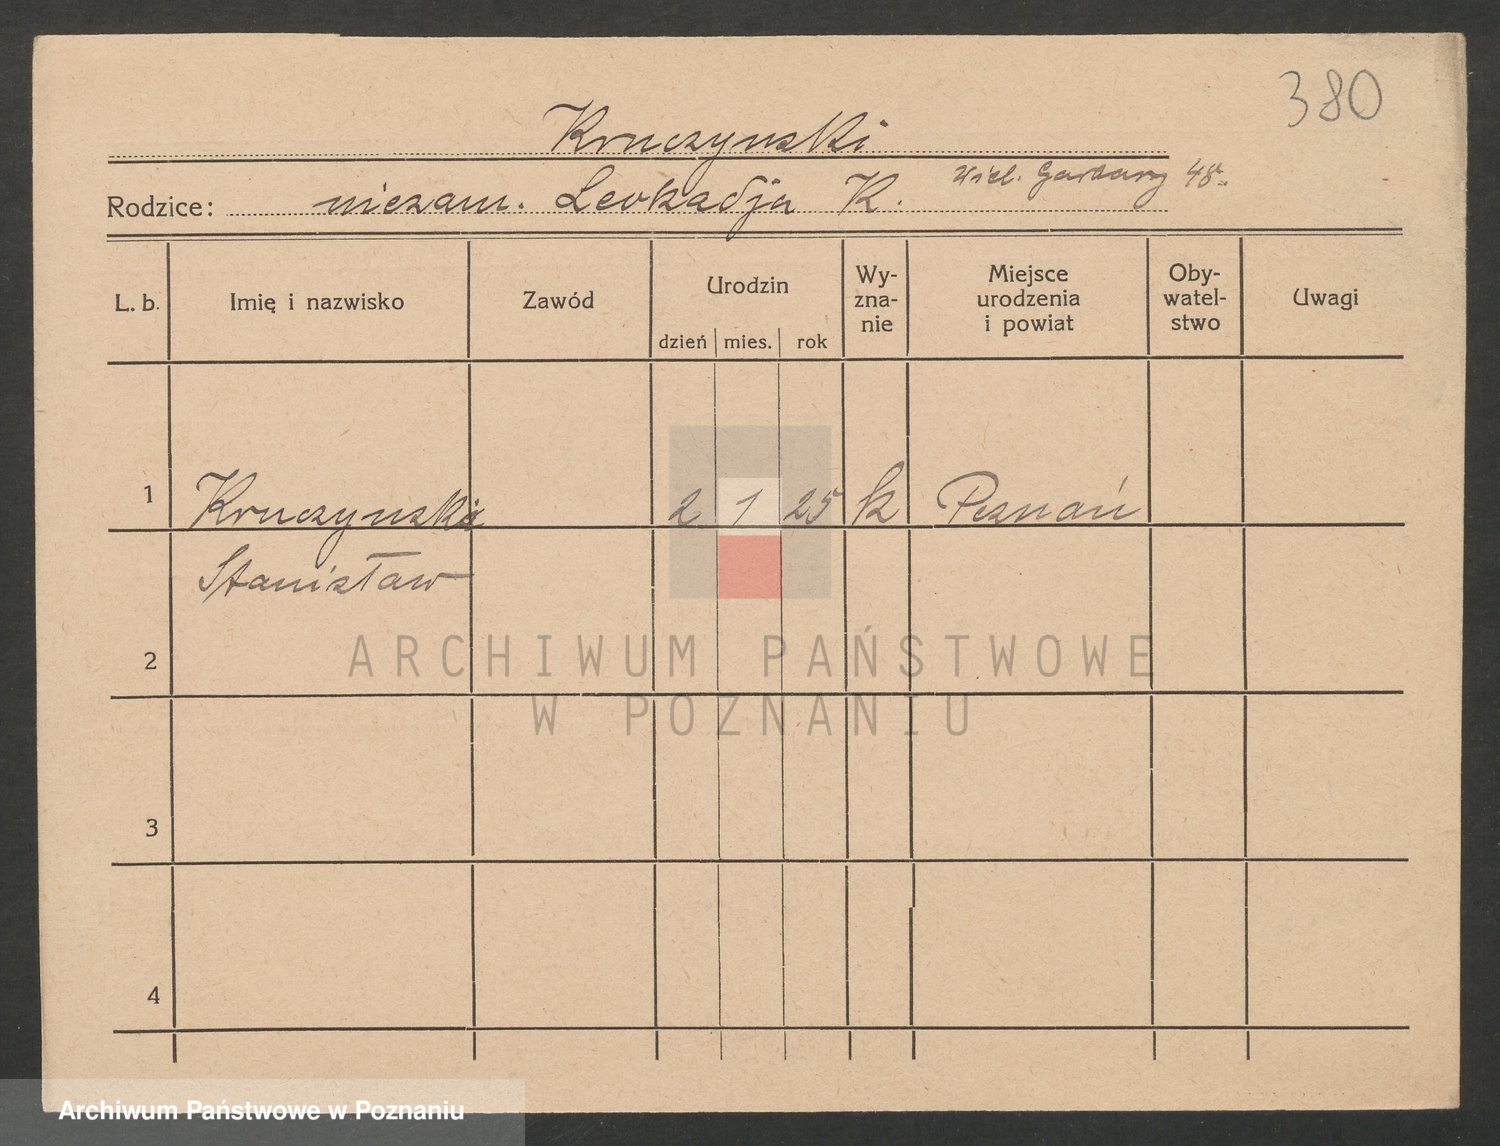 380
Kruczynski
Rodzice: niezam. Leokadja K. Wiel. Garbary 48.
L. b. Imię i nazwisko Zawód Urodzin Wy-zna-nie Miejsce urodzenia i powiat Oby-watel-stwo Uwagi
dzień mies. rok
1 Kruczynski 2 1 25 k Poznań
Stanisław
2
ARCHIWUM PAŃSTWOWE
W POZNANIU
3
4
Archiwum Państwowe w Poznaniu